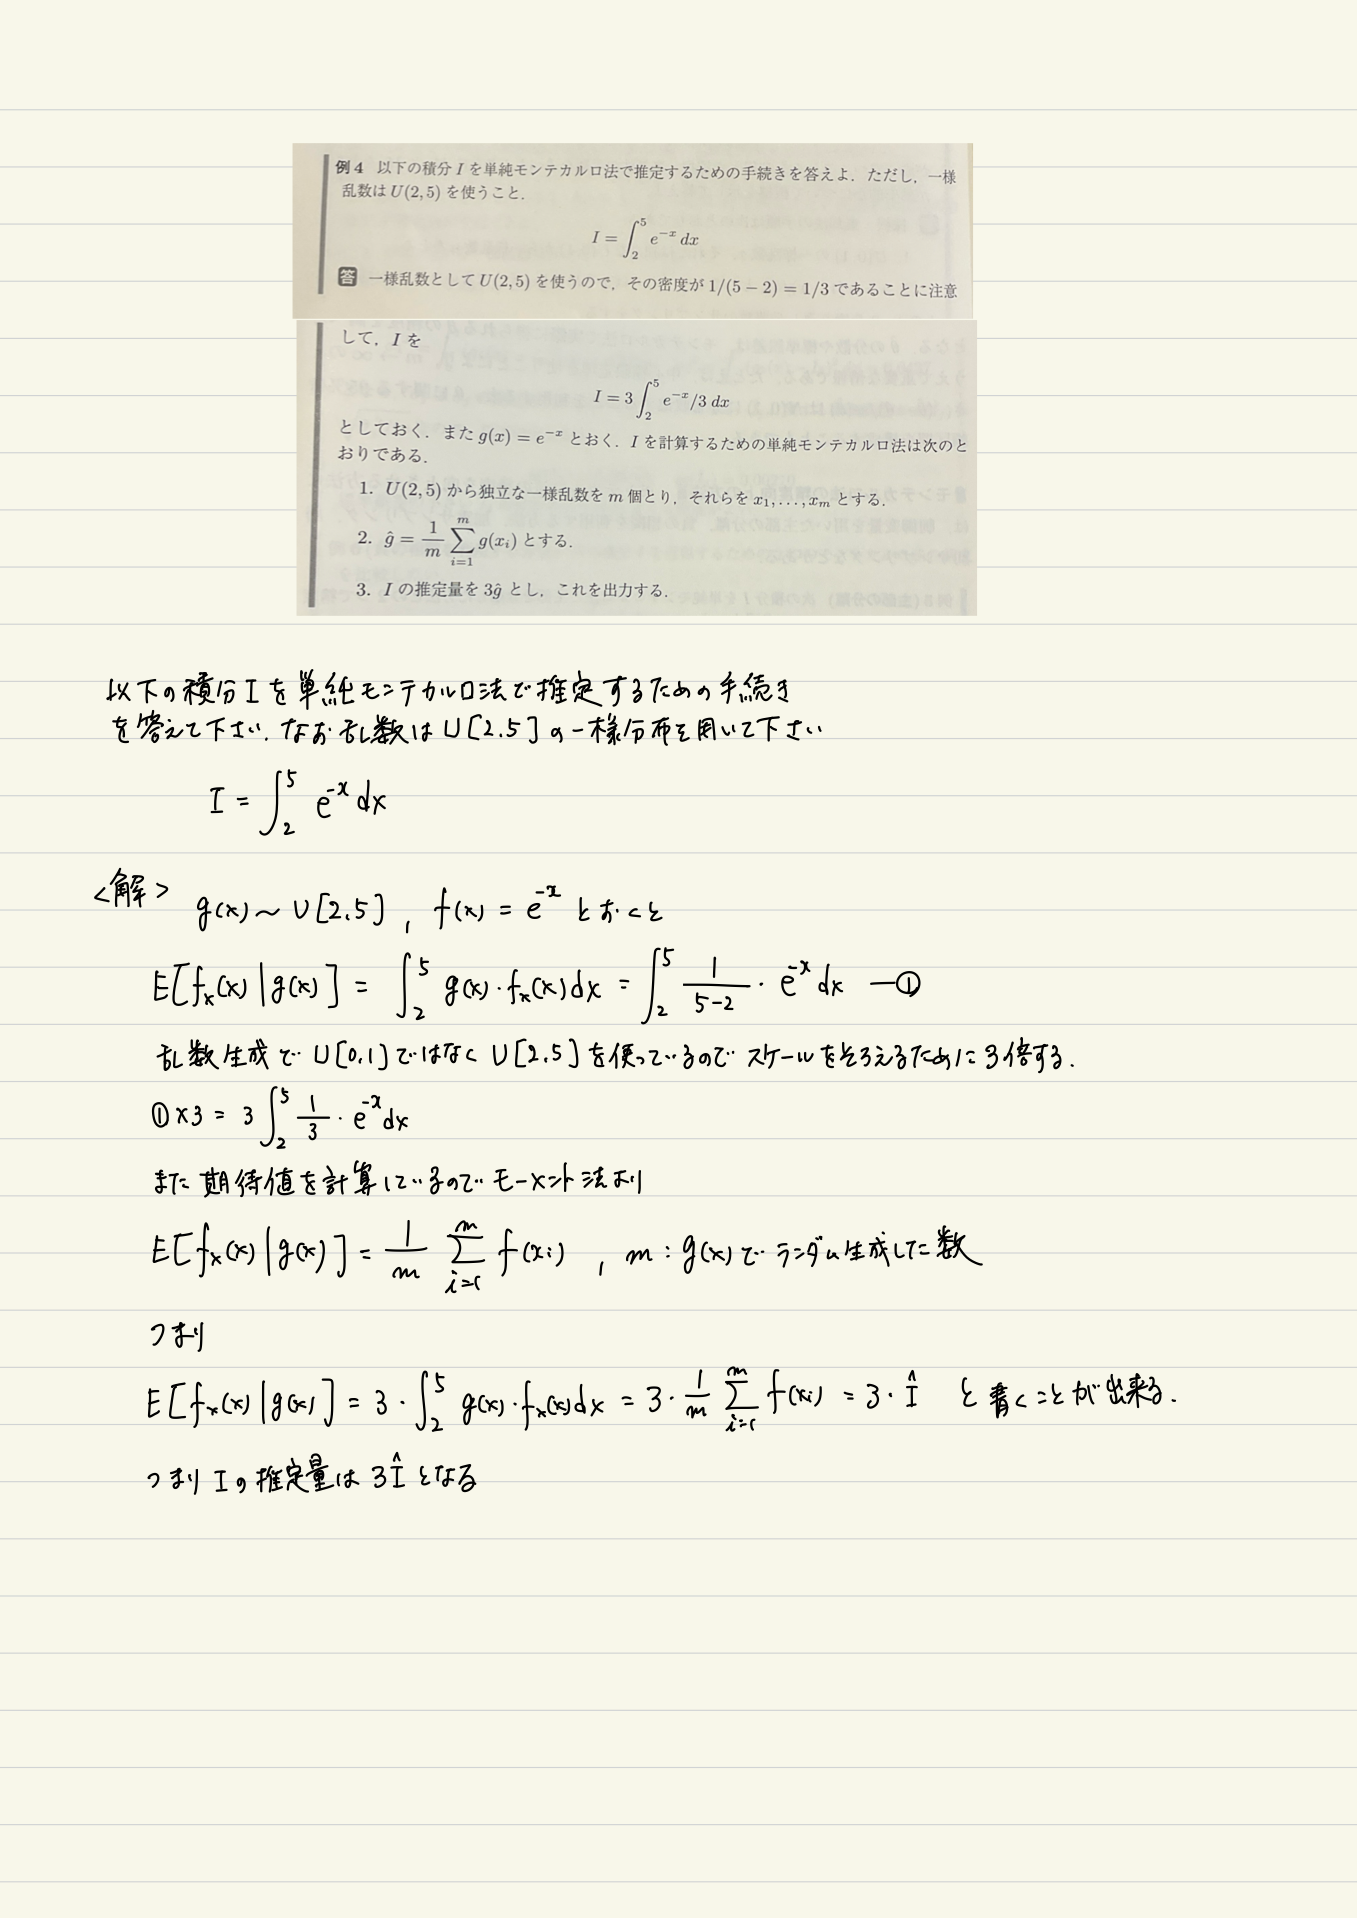 例4 以下の積分 I を単純モンテカルロ法で推定するための手続きを答えよ．ただし，一様
乱数は U(2,5) を使うこと．
I = ∫_2^5 e^{-x} dx
答 一様乱数として U(2,5) を使うので，その密度が 1/(5 − 2) = 1/3 であることに注意
して，I を
I = 3 ∫_2^5 e^{-x}/3 dx
としておく．また g(x) = e^{-x} とおく．I を計算するための単純モンテカルロ法は次のと
おりである．
1. U(2,5) から独立な一様乱数を m 個とり，それらを x_1, . . . , x_m とする．
2. ĝ = 1/m Σ_{i=1}^m g(x_i) とする．
3. I の推定量を 3ĝ とし，これを出力する．
以下の積分 I を単純モンテカルロ法で推定するための手続き
を答えて下さい. なお 乱数は U[2.5] の一様分布を用いて下さい
I = ∫_2^5 e^{-x} dx
<解> g(x) ~ U[2.5] , f(x) = e^{-x} とおくと
E[f_x(x) | g(x)] = ∫_2^5 g(x)・f_x(x)dx = ∫_2^5 1/(5-2)・e^{-x} dx —①
乱数生成で U[0,1]ではなく U[2.5]を使っているので スケールをそろえるために 3倍する.
①×3 = 3 ∫_2^5 1/3・e^{-x}dx
また 期待値を計算しているので モーメント法より
E[f_x(x) | g(x)] = 1/m Σ_{i=1}^m f(x_i) , m : g(x)で ランダム生成した数
つまり
E[f_x(x) | g(x)] = 3・∫_2^5 g(x)・f_x(x)dx = 3・1/m Σ_{i=1}^m f(x_i) = 3・Î と書くことが出来る.
つまり I の推定量は 3Î となる